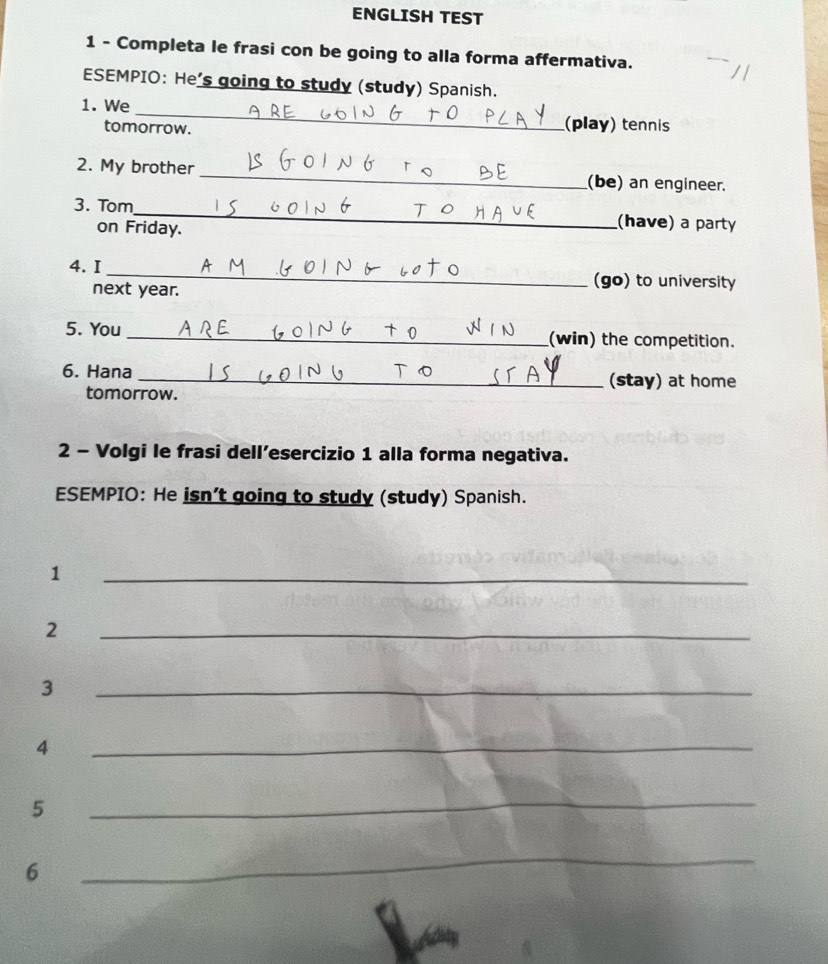 ENGLISH TEST
1 - Completa le frasi con be going to alla forma affermativa.
ESEMPIO: He's going to study (study) Spanish.
1. We ARE GOING TO PLAY (play) tennis
tomorrow.
2. My brother IS GOING TO BE (be) an engineer.
3. Tom IS GOING TO HAVE (have) a party
on Friday.
4. I AM GOING GOTO (go) to university
next year.
5. You ARE GOING TO WIN (win) the competition.
6. Hana IS GOING TO STAY (stay) at home
tomorrow.
2 - Volgi le frasi dell'esercizio 1 alla forma negativa.
ESEMPIO: He isn't going to study (study) Spanish.
1
2
3
4
5
6